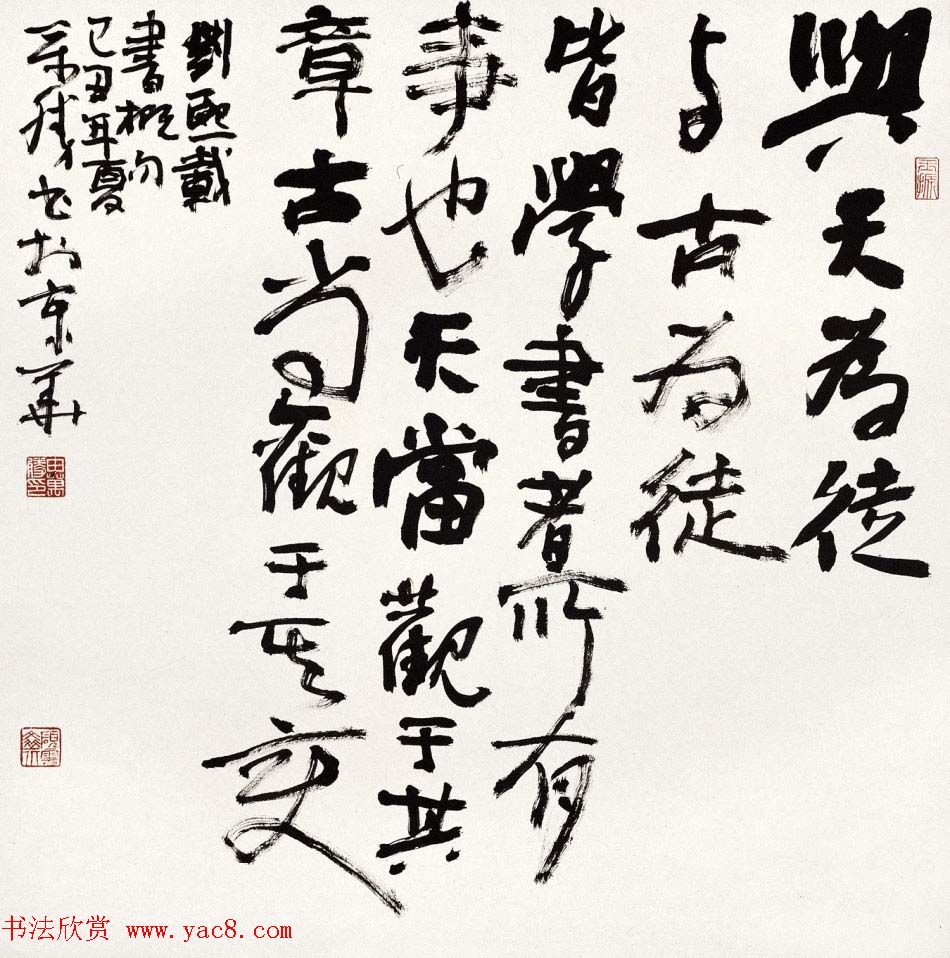 與天為徒
与古為徒
皆學書者所有
事也天當觀于其
章古當觀于其变
劉熙載
書概句
己丑年夏
书於京華
书法欣赏 www.yac8.com